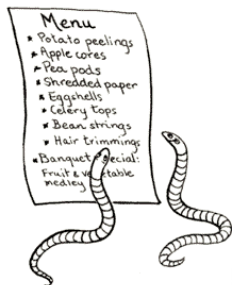 Menu
* Potato peelings
* Apple cores
* Pea pods
* Shredded paper
* Eggshells
* Celery tops
* Bean strings
* Hair trimmings
* Banquet special:
Fruit & vegetable
medley